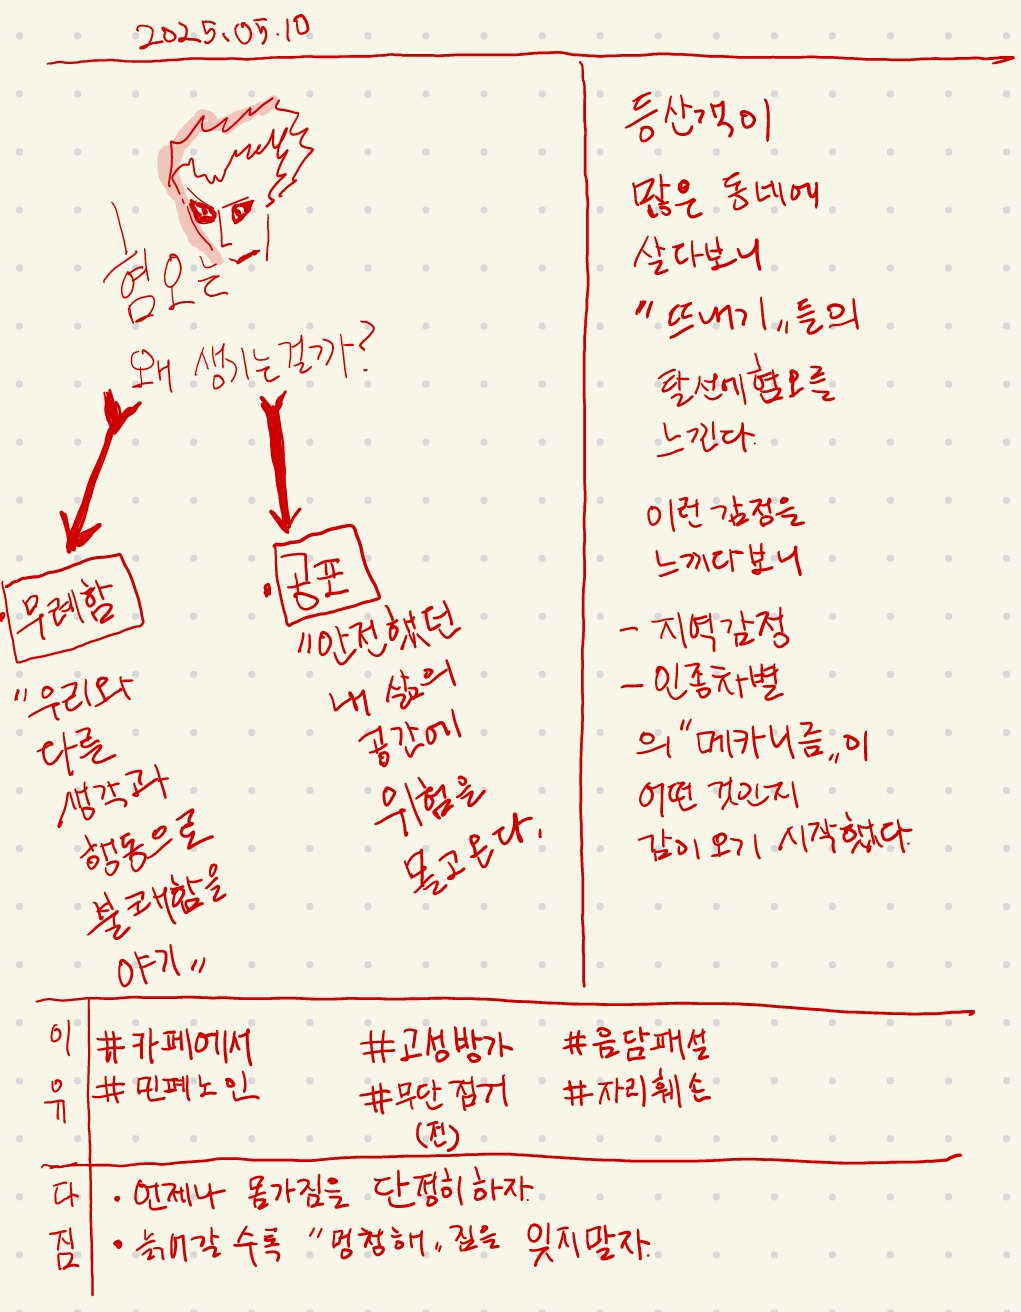 2025.05.10
혐오는
왜 생기는걸까?
무례함
"우리와
다른
생각과
행동으로
불쾌함을
야기"
공포
"안전했던
내 삶의
공간에
위험을
몰고온다.
등산객이
많은 동네에
살다보니
"뜨내기"들의
탈선에 혐오를
느낀다.
이런 감정을
느끼다보니
- 지역감정
- 인종차별
의 "메카니즘"이
어떤 것인지
감이 오기 시작했다.
이유
#카페에서 #고성방가 #음담패설
#민폐노인 #무단점거 #자리훼손
(전)
다짐
· 언제나 몸가짐을 단정히하자.
· 늙어갈 수록 "멍청해"짐을 잊지말자.